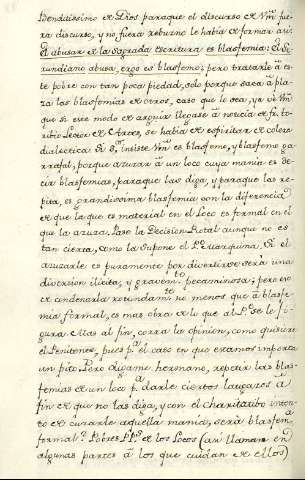 Benditissimo de Dios paraque el discurso de Vm. fue
ra discurso, y no fuera rebuzno le havia de formar asi.
El abusar de la Sagrada escritura es blasfemia: el Ge
rundiano abusa, ergo es blasfemo; pero tratarle à es
te pobre con tan poca piedad, solo porque saca à pla
za las blasfemias de otros, caso que lo sea, ya vè Vm.
que si este modo de arguir llegase à noticia de fr. To
ribio Lector de Artes, se havia de espiritar de colera
dialectica. Si Sr. insiste Vm. es blasfemo, y blasfemo ga
rrafal, porque azuzar à un loco cuya mania es de
cir blasfemias, paraque las diga, y paraque las re
pita, es grandissima blasfemia con la diferencia
de que la que es material en el Loco es formal en el
que la azuza. Paso la Decision aunque no es
tan cierta, como la supone el P. Marquina. Si el
azuzarle es puramente por divertirse serà una
diversion ilicita, y gravem.te pecaminosa; pero eso
de condenarla rotundam.te no menos que à blasfe
mia formal, es mas obra de lo que al P. se le fi
gura. Mas al fin, corra la opinion, como quisiere
el Penitente, pues p.a el caso en que estamos importa
un pito. Pero digame hermano, repetir las blas
femias de un loco p.a darle ciertos latigazos à
fin de que no las diga, y con el charitatibo inten
to de curarle aquella mania, serà blasfem.a
formal? Pobres PP.s de los Locos (asi llaman en
algunas partes à los que cuidan de ellos)